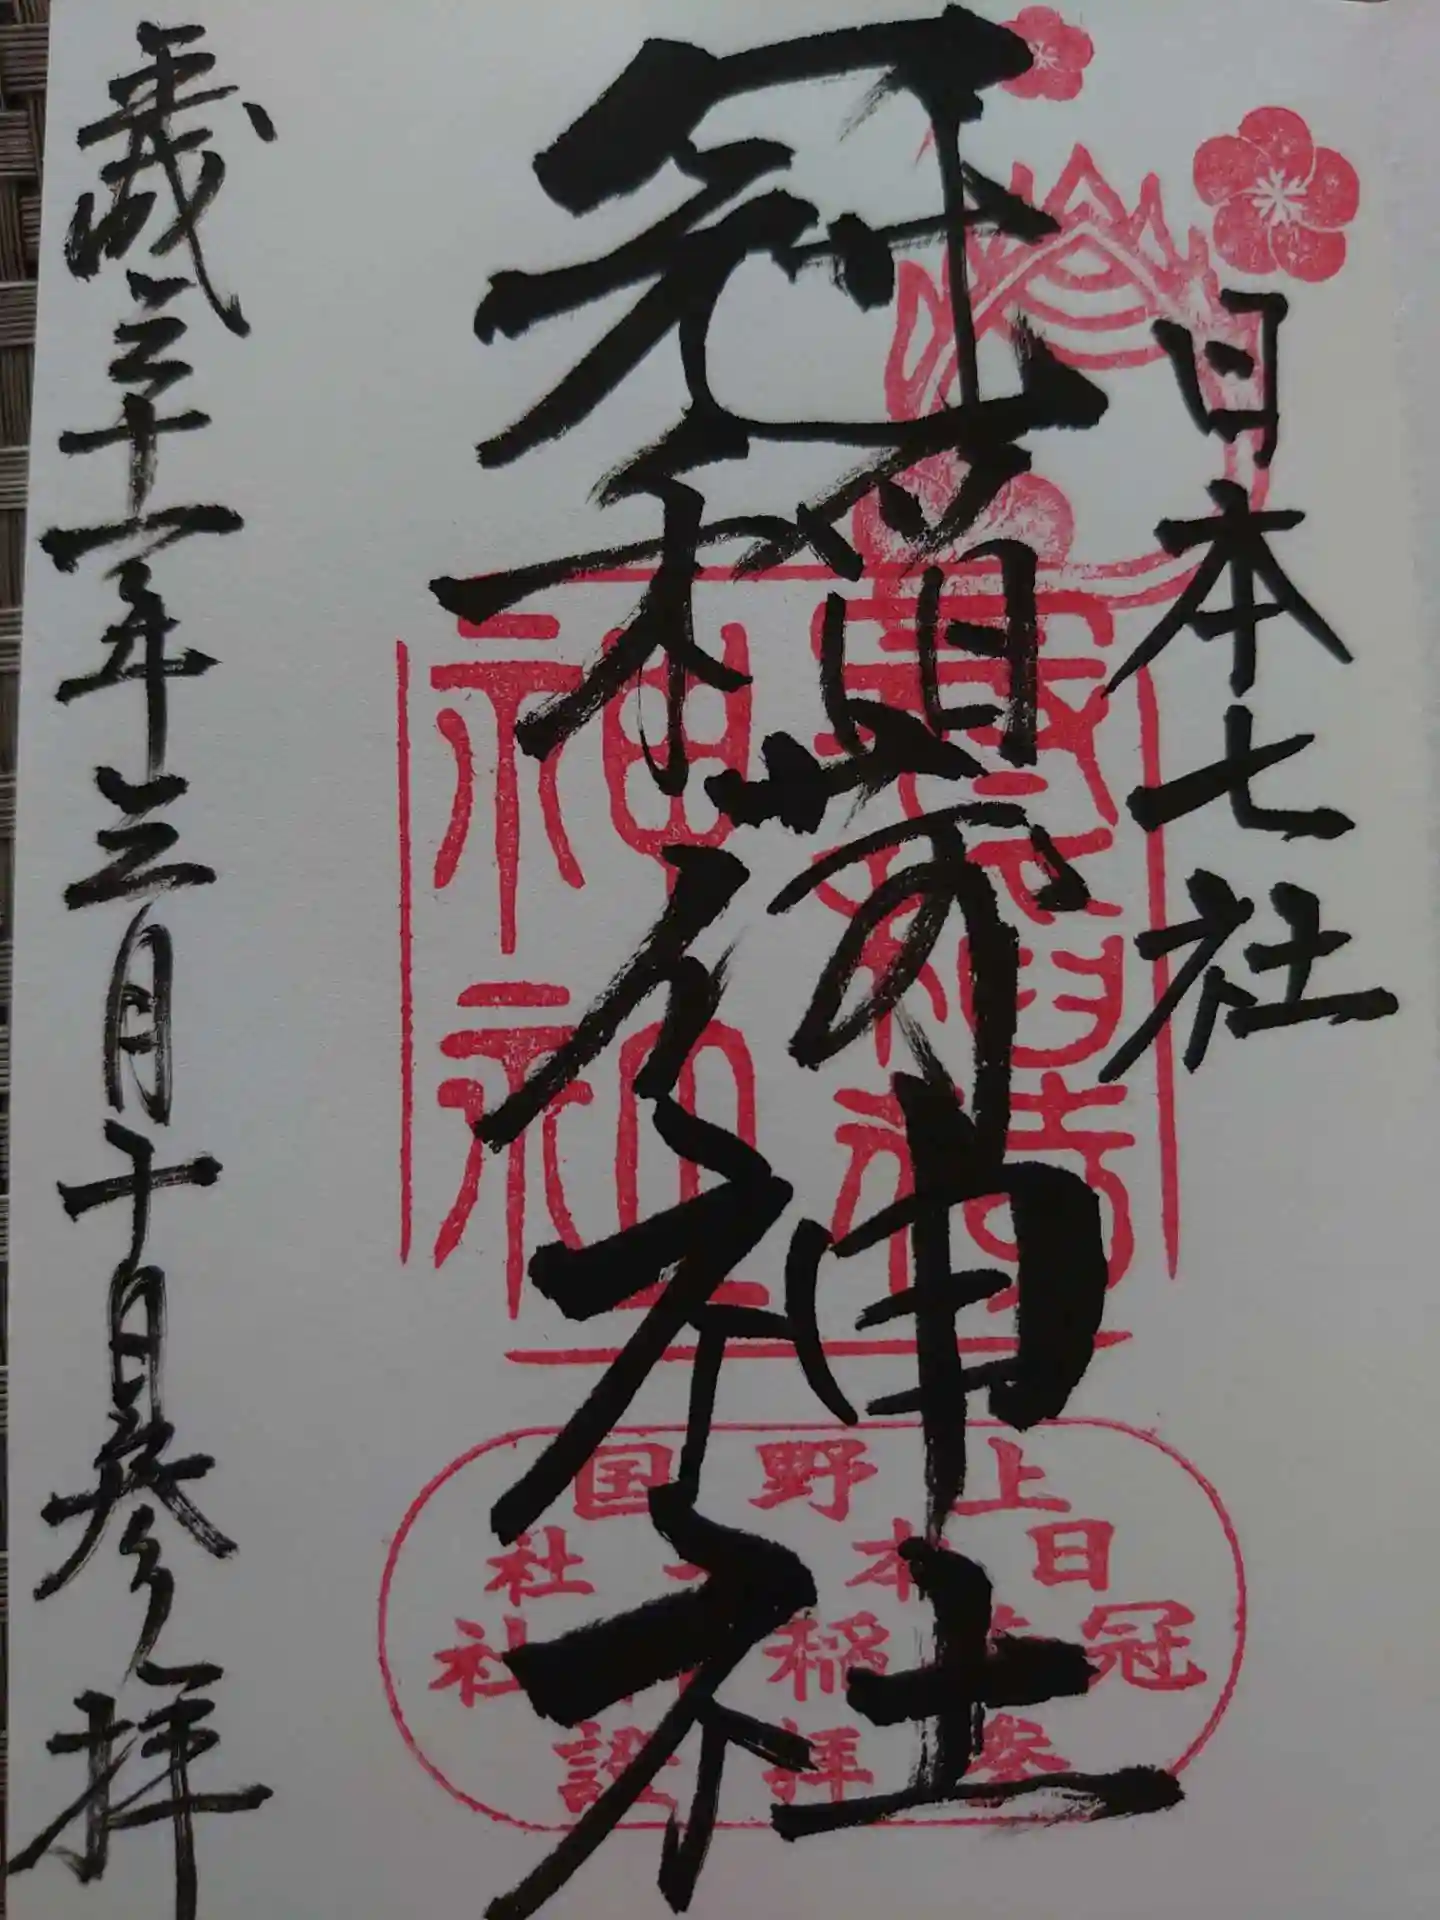 日本七社
冠稲荷神社
平成三十一年三月十日参拝
上野国
日本七社
冠稲荷神社
参拝